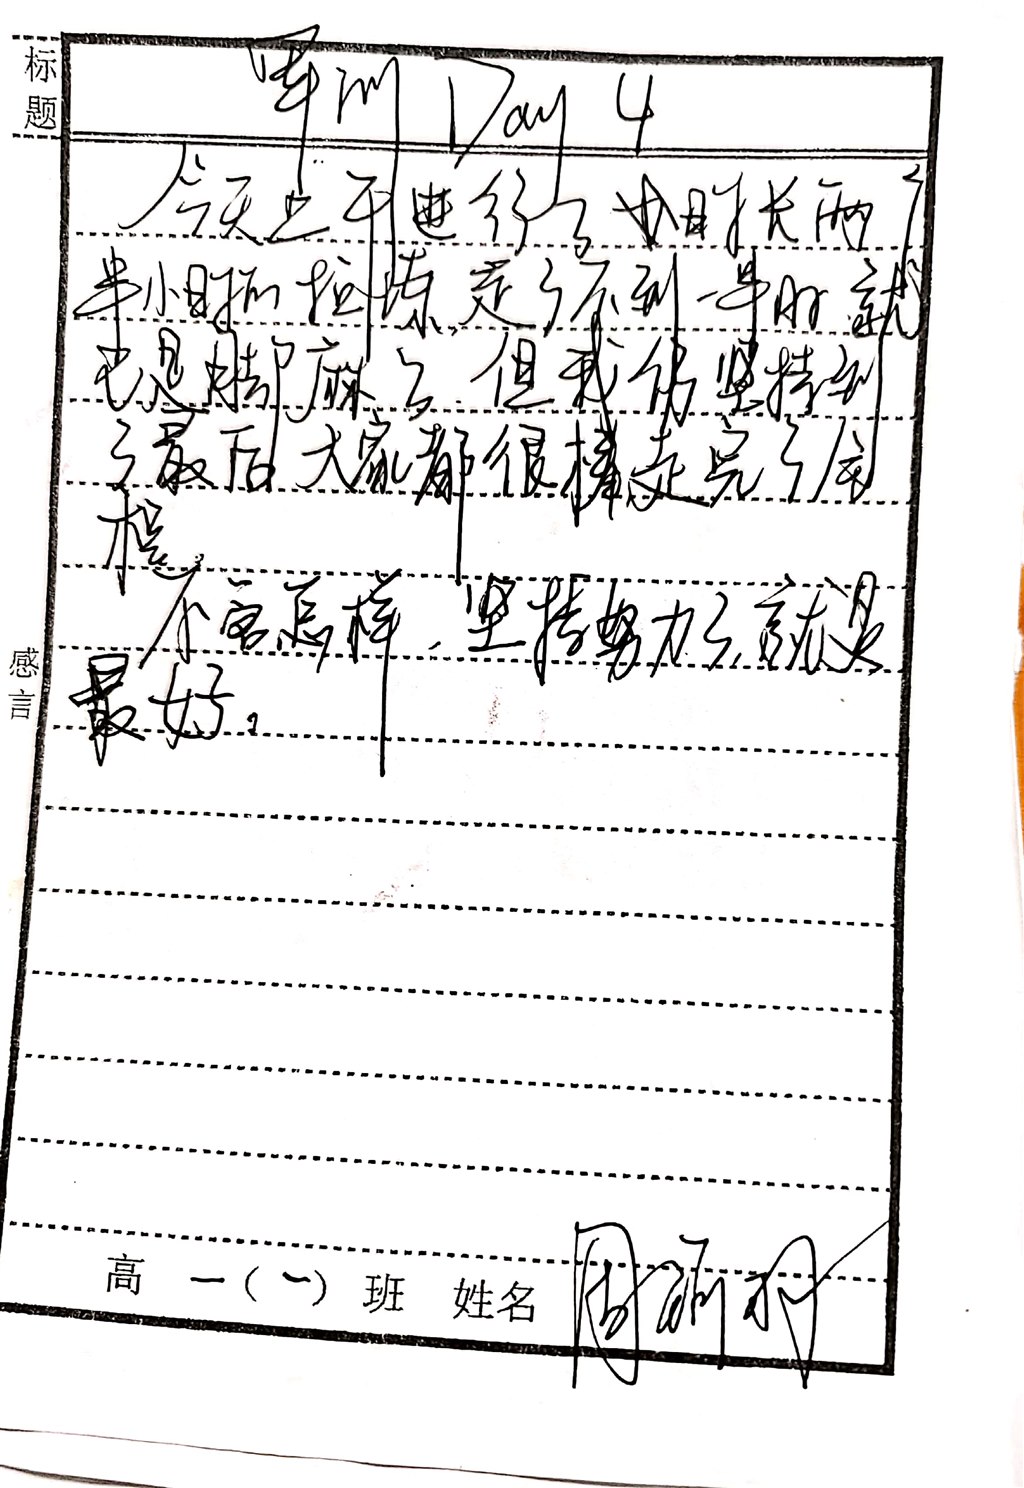 标题
军训 Day 4
今天上午进行了为时长两个
半小时的拉练,走了不到一半时就
已是脚麻了.但我仍坚持到
了最后大家都很棒走完了全
程.
不管怎样,坚持努力了,就是
最好。
感言
高 一(一)班 姓名 周